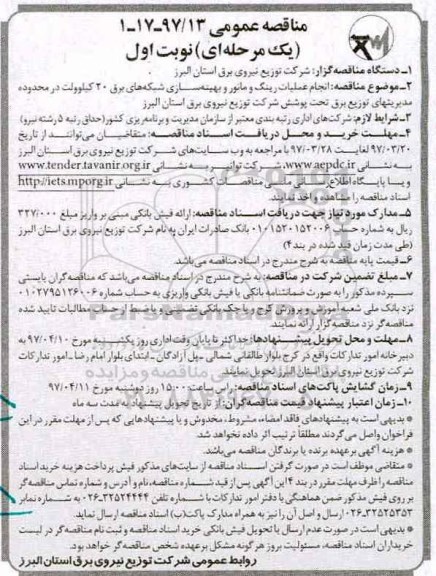 مناقصه عمومی ۹۷/۱۳-۱۷-۱
(یک مرحله‌ای) نوبت اول
۱- دستگاه مناقصه‌گزار: شرکت توزیع نیروی برق استان البرز
۲- موضوع مناقصه: انجام عملیات رینگ و مانور و بهینه‌سازی شبکه‌های برق ۲۰ کیلوولت در محدوده
مدیریتهای توزیع برق تحت پوشش شرکت توزیع نیروی برق استان البرز
۳- شرایط لازم: شرکت‌های اداری رتبه بندی معتبر از سازمان مدیریت و برنامه ریزی کشور (حداقل رتبه ۵ رشته نیرو)
۴- مهلت خرید و محل دریافت اسناد مناقصه: متقاضیان می‌توانند از تاریخ
۹۷/۰۳/۲۰ لغایت ۹۷/۰۳/۲۸ با مراجعه به وب سایت‌های شرکت توزیع نیروی برق استان البرز
به نشانی www.aepdc.ir، شرکت توانیر به نشانی www.tender.tavanir.org.ir
و یا پایگاه اطلاع‌رسانی ملی مناقصات کشوری به نشانی http://iets.mporg.ir
اسناد مناقصه را مشاهده و اخذ نمایند.
۵- مدارک مورد نیاز جهت دریافت اسناد مناقصه: ارائه فیش بانکی مبنی بر واریز مبلغ ۳۲۷/۰۰۰
ریال به شماره حساب ۰۱۰۱۵۲۰۱۵۲۰۰۶ بانک صادرات ایران به نام شرکت توزیع نیروی برق استان البرز
(طی مدت زمان قید شده در بند ۴)
۶- قیمت پایه مناقصه به شرح مندرج در اسناد مناقصه می‌باشد.
۷- مبلغ تضمین شرکت در مناقصه: به شرح مندرج در اسناد مناقصه می‌باشد که مناقصه گران بایستی
سپرده مذکور را به صورت ضمانتنامه بانکی یا فیش بانکی واریزی به حساب شماره ۰۱۰۲۷۹۵۱۲۶۰۰۶
نزد بانک ملی شعبه آموزش و پرورش کرج و یا چک بانکی تضمینی و یا ضبط از محل مطالبات تایید شده
مناقصه‌گر نزد مناقصه‌گزار ارائه نمایند.
۸- مهلت و محل تحویل پیشنهادها: حداکثر تا پایان وقت اداری روز یکشنبه مورخ ۹۷/۰۴/۱۰ به
دبیرخانه امور تدارکات واقع در کرج بلوار طالقانی شمالی - پل آزادگان - ابتدای بلوار امام رضا - امور تدارکات
شرکت توزیع نیروی برق استان البرز تحویل نمایند.
۹- زمان گشایش پاکت‌های اسناد مناقصه: راس ساعت ۱۵:۰۰ روز دوشنبه مورخ ۹۷/۰۴/۱۱
۱۰- زمان اعتبار پیشنهاد قیمت مناقصه‌گران: از تاریخ تحویل پیشنهادات به مدت سه ماه
* بدیهی است به پیشنهادهای فاقد امضاء، مشروط، مخدوش و یا پیشنهادهایی که پس از مهلت مقرر در این
فراخوان واصل می‌گردند مطلقاً ترتیب اثر داده نخواهد شد.
* هزینه آگهی برعهده برنده یا برندگان مناقصه می‌باشد.
* متقاضی موظف است در صورت گرفتن اسناد مناقصه از سایت‌های مذکور فیش پرداخت هزینه خرید اسناد
مناقصه را ظرف مهلت مقرر در بند ۴ این آگهی پس از قید شماره مناقصه، نام و آدرس و شماره تماس مناقصه‌گر
بر روی فیش مذکور ضمن هماهنگی با دفتر امور تدارکات با شماره تلفن ۳۲۵۲۴۴۴۴-۰۲۶ به شماره نمابر
۳۲۵۲۵۳۵۳-۰۲۶ ارسال و اصل آن را نیز به همراه مدارک پاکت (ب) اسناد مناقصه ارسال نماید.
* بدیهی است در صورت عدم ارسال یا تحویل فیش بانکی خرید اسناد مناقصه و ثبت نام مناقصه‌گر در لیست
خریداران اسناد مناقصه، مسئولیت بروز هر گونه مشکل برعهده شخص مناقصه‌گر خواهد بود.
روابط عمومی شرکت توزیع نیروی برق استان البرز